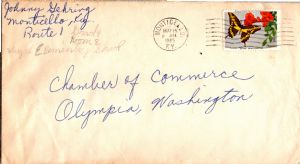 Johnny Gehring
Monticello, Ky.
Route 1
Home
MONTICELLO
KY.
Chamber of Commerce
Olympia, Washington